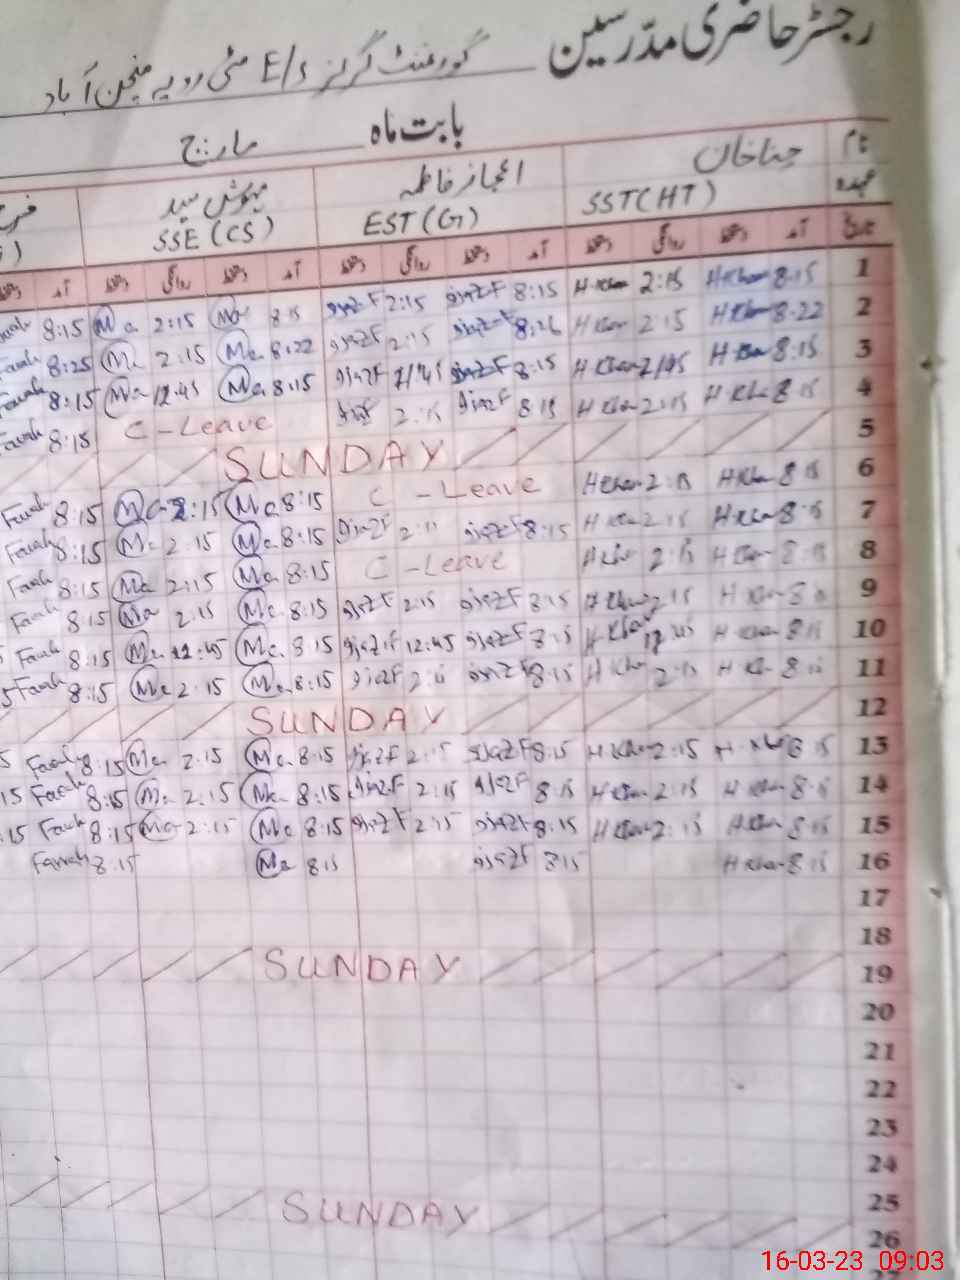 رجسٹر حاضری مدّرسین گورنمنٹ گرلز E/S
بابت ماہ مارچ
نام حنا خان اعجاز فاطمہ مہوش سید
عہدہ SST(HT) EST(G) SSE(CS)
تاریخ آمد دستخط روانگی دستخط آمد دستخط روانگی دستخط آمد دستخط روانگی دستخط آمد
Farah 8:15 Ma 2:15 Ma 8:15 IjazF 2:15 IjazF 8:15 H-Khan 2:15 H-Khan 8:15 1
Farah 8:25 Ma 2:15 Ma 8:22 IjazF 2:15 IjazF 8:26 H Khan 2:15 H Khan 8:22 2
Farah 8:15 Ma 12:45 Ma 8:15 IjazF IjazF 8:15 H-Khan H Khan 8:15 3
Farah 8:15 C-Leave IjazF 2:15 IjazF 8:15 H Khan 2:15 H Khan 8:15 4
SUNDAY 5
Farah 8:15 Ma 2:15 Ma 8:15 C-Leave H Khan 2:15 H Khan 8:15 6
Farah 8:15 Ma 2:15 Ma 8:15 IjazF 2:15 IjazF 8:15 H Khan 2:15 H Khan 8:15 7
Farah 8:15 Ma 2:15 Ma 8:15 C-Leave H Khan 2:15 H Khan 8:15 8
Farah 8:15 Ma 2:15 Ma 8:15 IjazF 2:15 IjazF 8:15 H Khan 2:15 H Khan 8:15 9
Farah 8:15 Ma 12:45 Ma 8:15 IjazF 12:45 IjazF 8:15 H-Khan 12:45 H Khan 8:15 10
Farah 8:15 Ma 2:15 Ma 8:15 IjazF 2:15 IjazF 8:15 H Khan 2:15 H Khan 8:15 11
SUNDAY 12
Farah 8:15 Ma 2:15 Ma 8:15 IjazF 2:15 IjazF 8:15 H Khan 2:15 H Khan 8:15 13
Farah 8:15 Ma 2:15 Ma 8:15 IjazF 2:15 IjazF 8:15 H Khan 2:15 H Khan 8:15 14
Farah 8:15 Ma 2:15 Ma 8:15 IjazF 2:15 IjazF 8:15 H Khan 2:15 H Khan 8:15 15
Farah 8:15 Ma 8:15 IjazF 8:15 H Khan 8:15 16
17
18
SUNDAY 19
20
21
22
23
24
25
SUNDAY 26
16-03-23 09:03